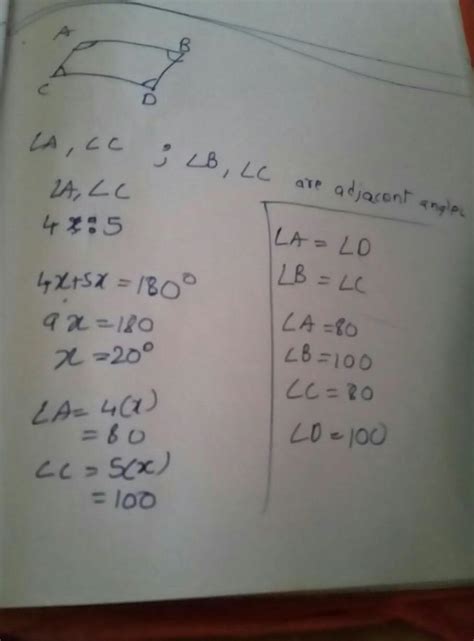 A
B
C
D
∠A, ∠C ; ∠B, ∠C are adjacent angles
∠A, ∠C
4x:5
4x+5x = 180°
9x = 180
x = 20°
∠A = 4(x)
= 80
∠C = 5(x)
= 100
∠A = ∠D
∠B = ∠C
∠A = 80
∠B = 100
∠C = 80
∠D = 100